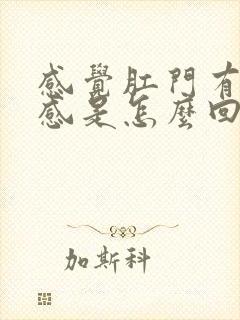 感覺肛門有
感是怎麼回
加斯科